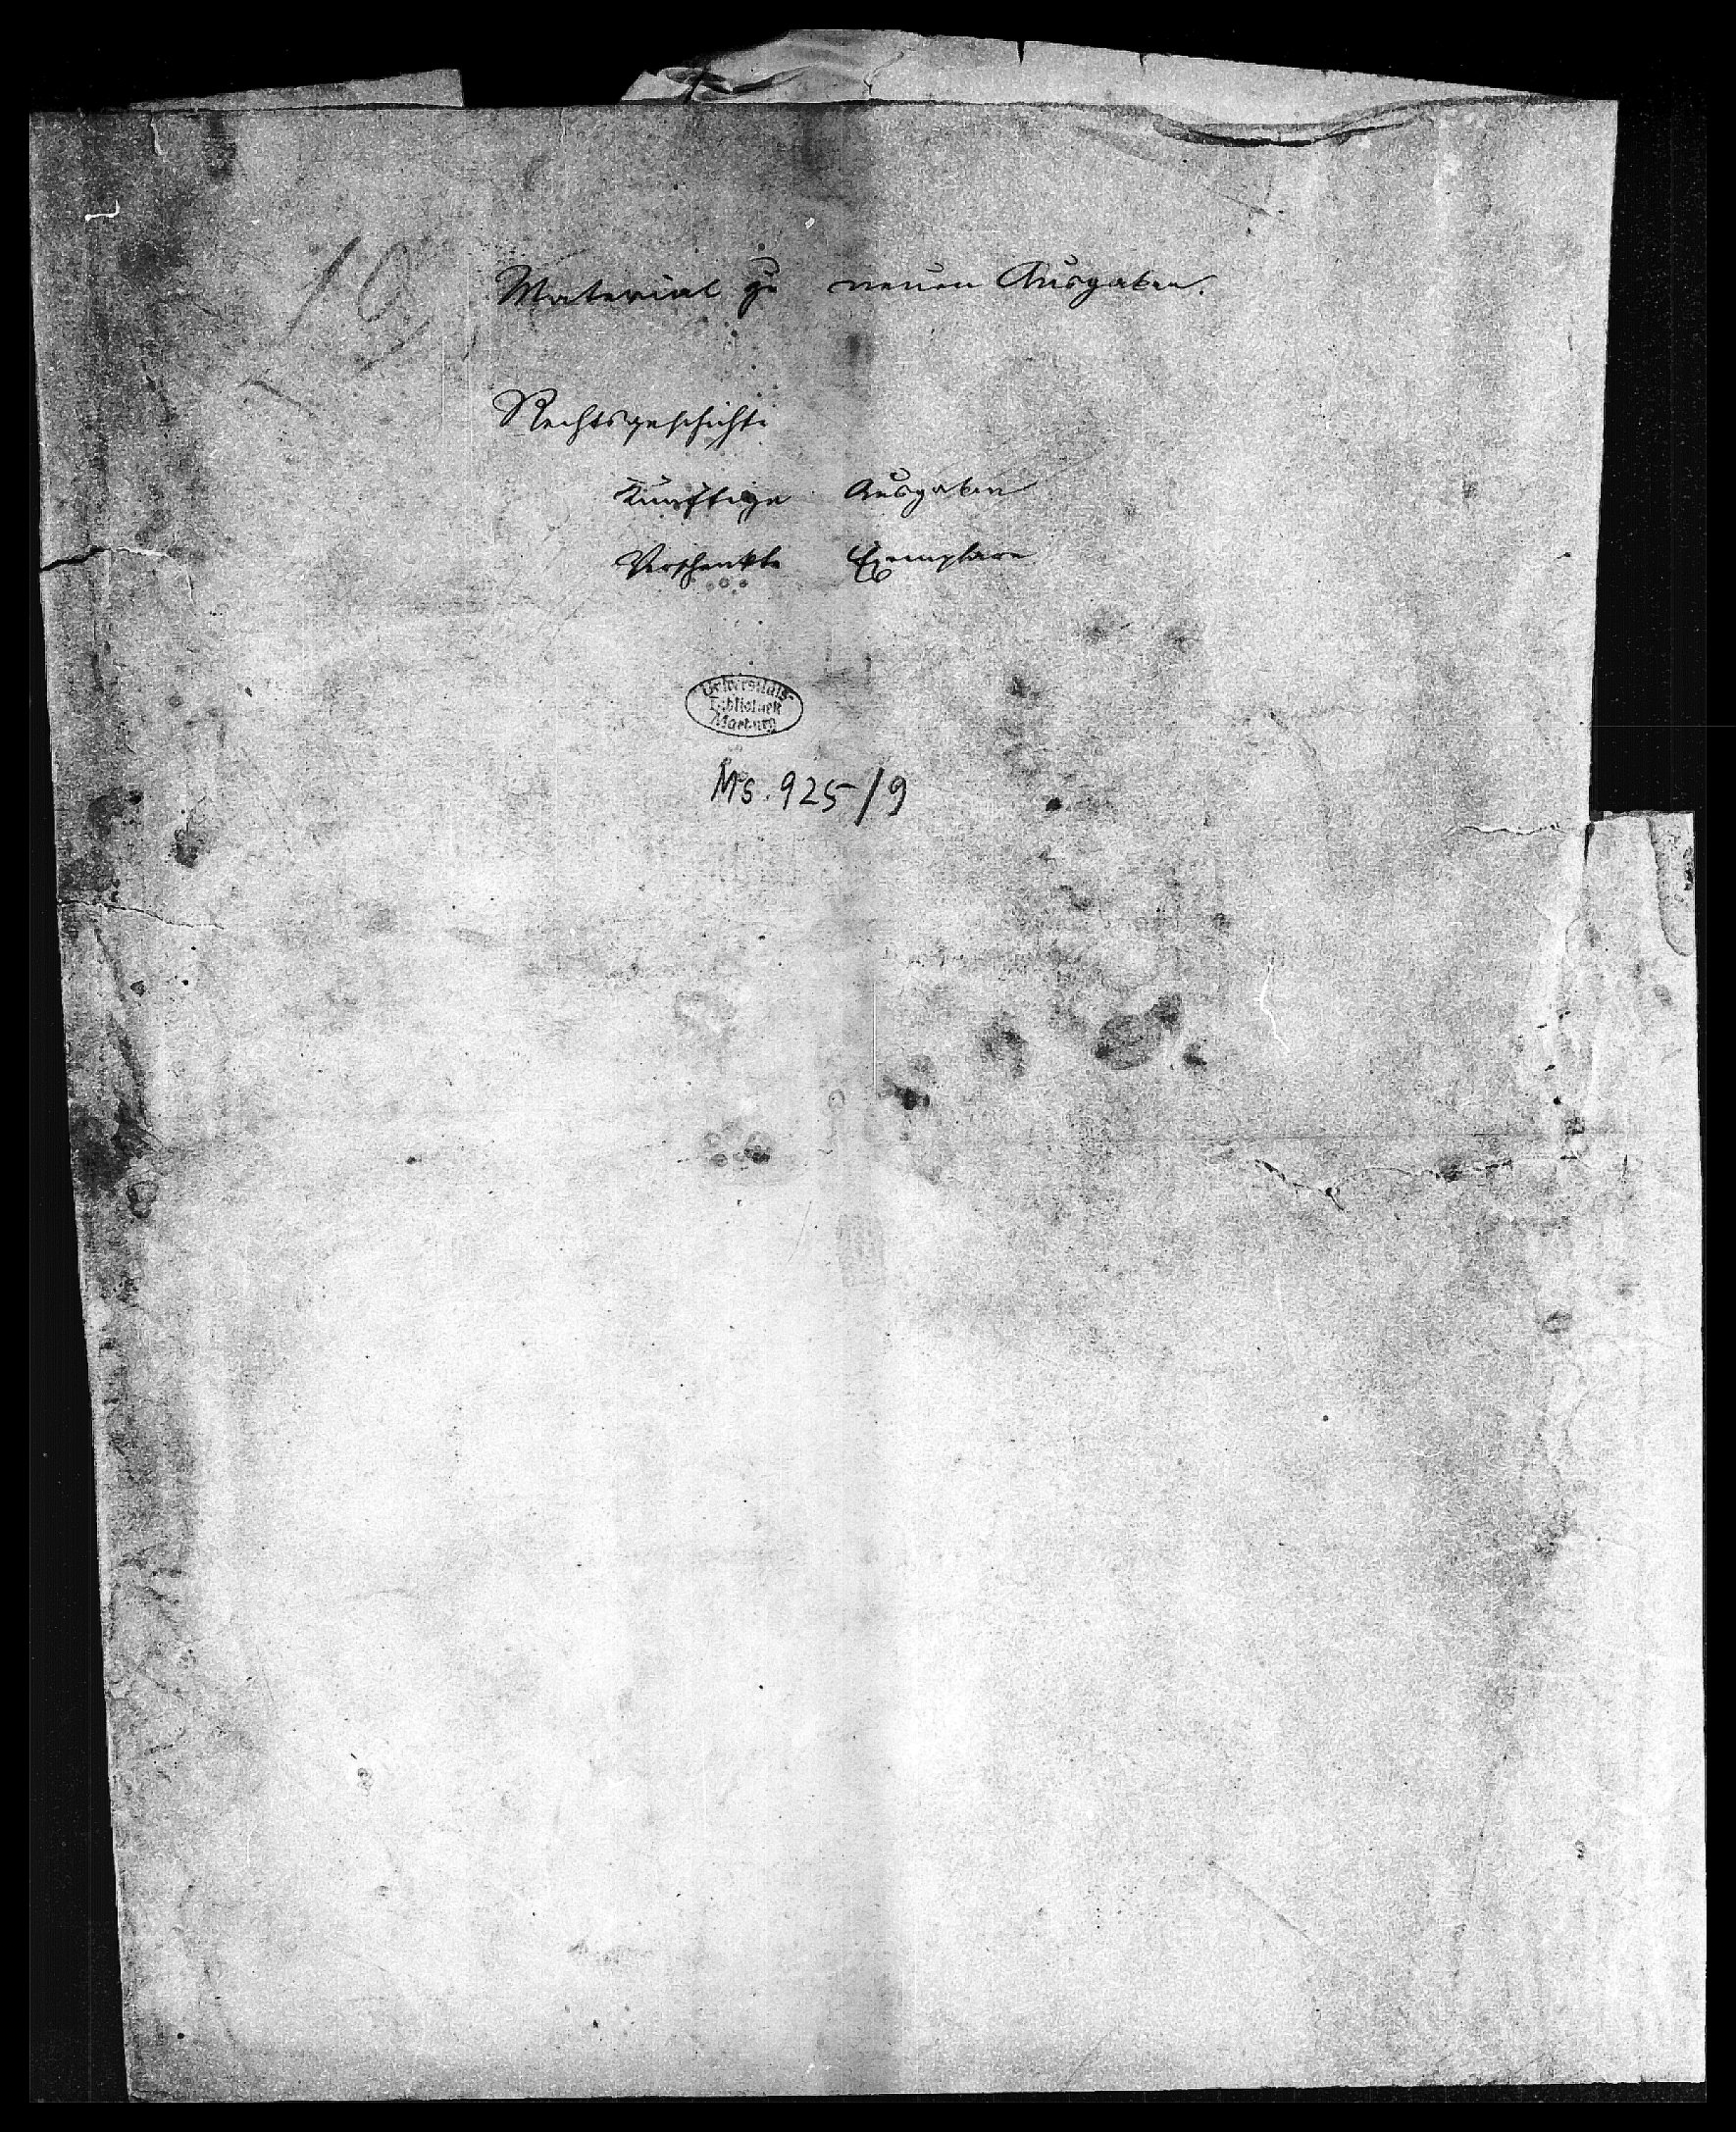 10
Material zu neuen Ausgaben.
Rechtsgeschichte
Künftige Ausgaben
Verschenkte Exemplare
Universitäts-
Bibliothek
Marburg
Ms. 925/9